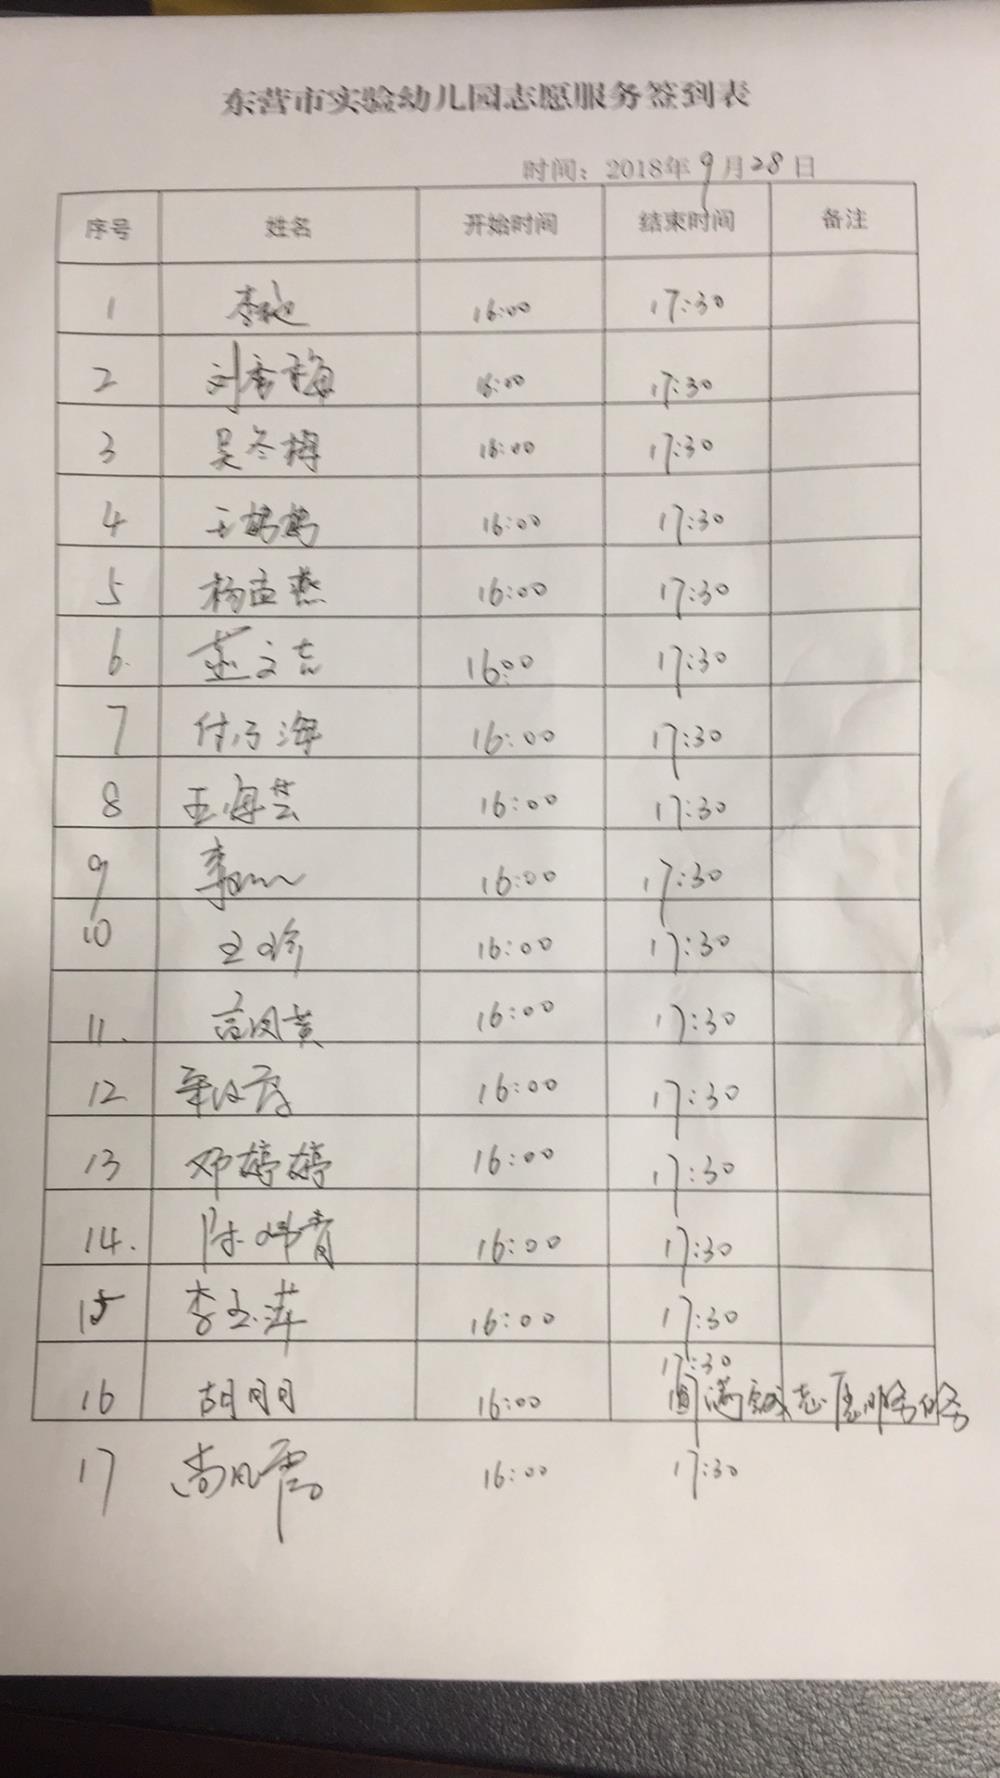 东营市实验幼儿园志愿服务签到表
时间：2018年9月28日
序号 姓名 开始时间 结束时间 备注
1 16:00 17:30
2 刘秀梅 16:00 17:30
3 吴冬梅 16:00 17:30
4 王鹤鹤 16:00 17:30
5 杨孟燕 16:00 17:30
6. 文志 16:00 17:30
7 付乃海 16:00 17:30
8 王海芸 16:00 17:30
9 李 16:00 17:30
10 王 16:00 17:30
11. 高凤黄 16:00 17:30
12 16:00 17:30
13 邓婷婷 16:00 17:30
14. 陈 青 16:00 17:30
15 李玉萍 16:00 17:30
16 胡月月 16:00 17:30
圆满完成志愿服务任务
17 尚风霞 16:00 17:30